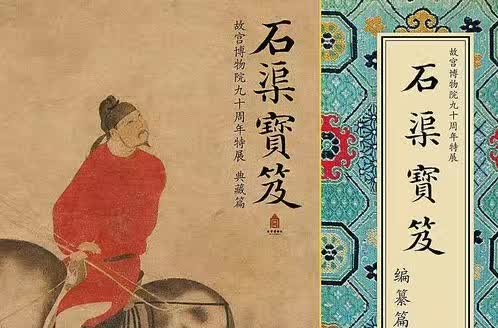 石渠寶笈
故宫博物院九十周年特展 典藏篇
石渠寶笈
故宫博物院九十周年特展
编纂篇